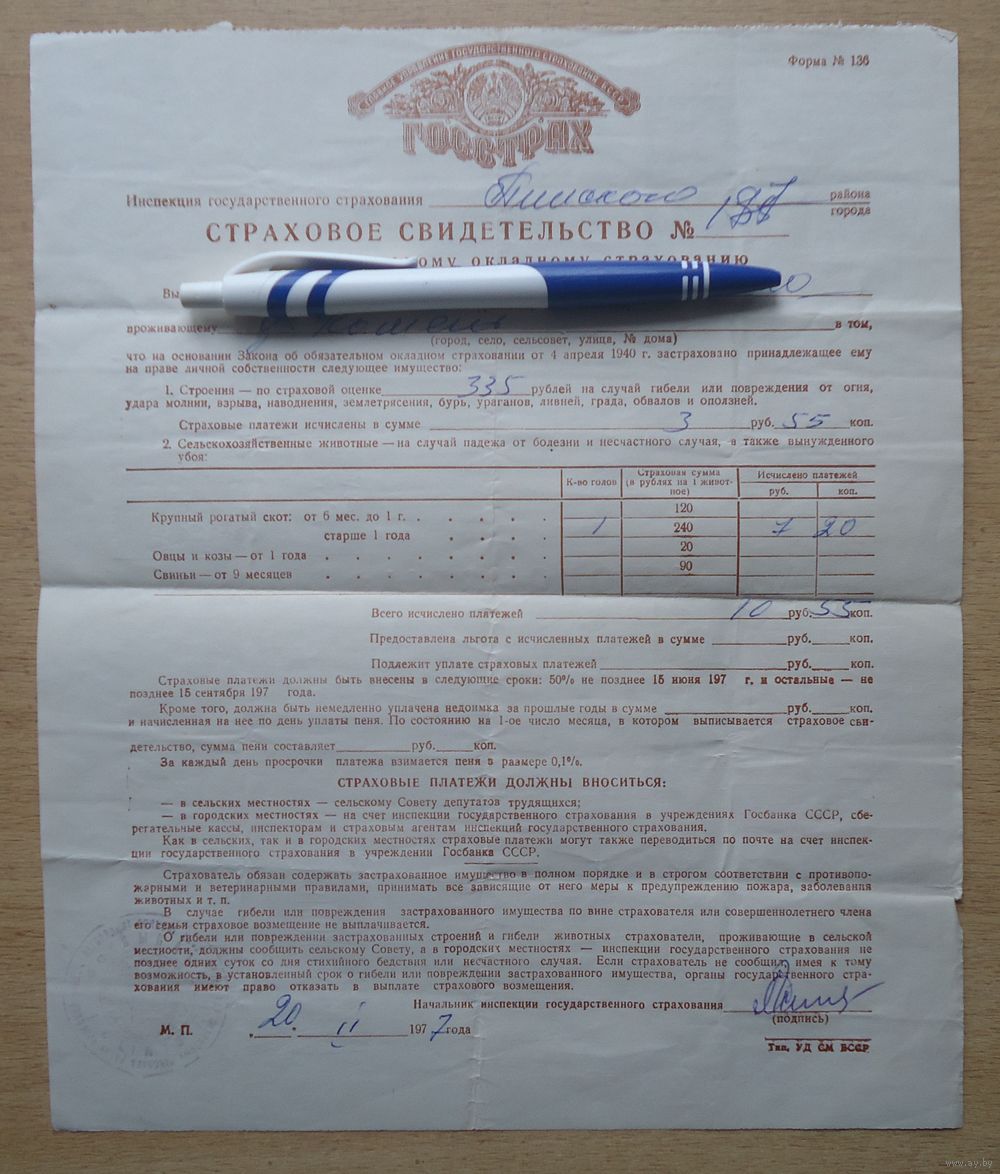 ГЛАВНОЕ УПРАВЛЕНИЕ ГОСУДАРСТВЕННОГО СТРАХОВАНИЯ БССР
ГОССТРАХ
Форма № 136
Инспекция государственного страхования Пинского района
города
СТРАХОВОЕ СВИДЕТЕЛЬСТВО №
ому окладному страхованию
Вы
проживающему в том,
(город, село, сельсовет, улица, № дома)
что на основании Закона об обязательном окладном страховании от 4 апреля 1940 г. застраховано принадлежащее ему
на праве личной собственности следующее имущество:
1. Строения — по страховой оценке 335 рублей на случай гибели или повреждения от огня,
удара молнии, взрыва, наводнения, землетрясения, бурь, ураганов, ливней, града, обвалов и оползней.
Страховые платежи исчислены в сумме 3 руб. 55 коп.
2. Сельскохозяйственные животные — на случай падежа от болезни и несчастного случая, а также вынужденного
убоя:
К-во голов Страховая сумма (в рублях на 1 живот-ное) Исчислено платежей
руб. коп.
Крупный рогатый скот: от 6 мес. до 1 г. . . . . . 120
старше 1 года . . . . 1 240 7 20
Овцы и козы — от 1 года . . . . . . . 20
Свиньи — от 9 месяцев . . . . . . . . 90
Всего исчислено платежей 10 руб. 55 коп.
Предоставлена льгота с исчисленных платежей в сумме руб. коп.
Подлежит уплате страховых платежей руб. коп.
Страховые платежи должны быть внесены в следующие сроки: 50% не позднее 15 июня 197 г. и остальные — не
позднее 15 сентября 197 года.
Кроме того, должна быть немедленно уплачена недоимка за прошлые годы в сумме руб. коп.
и начисленная на нее по день уплаты пеня. По состоянию на 1-ое число месяца, в котором выписывается страховое сви-
детельство, сумма пени составляет руб. коп.
За каждый день просрочки платежа взимается пеня в размере 0,1%.
СТРАХОВЫЕ ПЛАТЕЖИ ДОЛЖНЫ ВНОСИТЬСЯ:
— в сельских местностях — сельскому Совету депутатов трудящихся;
— в городских местностях — на счет инспекции государственного страхования в учреждениях Госбанка СССР, сбе-
регательные кассы, инспекторам и страховым агентам инспекций государственного страхования.
Как в сельских, так и в городских местностях страховые платежи могут также переводиться по почте на счет инспек-
ции государственного страхования в учреждении Госбанка СССР.
Страхователь обязан содержать застрахованное имущество в полном порядке и в строгом соответствии с противопо-
жарными и ветеринарными правилами, принимать все зависящие от него меры к предупреждению пожара, заболевания
животных и т. п.
В случае гибели или повреждения застрахованного имущества по вине страхователя или совершеннолетнего члена
его семьи страховое возмещение не выплачивается.
О гибели или повреждении застрахованных строений и гибели животных страхователи, проживающие в сельской
местности, должны сообщить сельскому Совету, а в городских местностях — инспекции государственного страхования не
позднее одних суток со дня стихийного бедствия или несчастного случая. Если страхователь не сообщил, имея к тому
возможность, в установленный срок о гибели или повреждении застрахованного имущества, органы государственного стра-
хования имеют право отказать в выплате страхового возмещения.
Начальник инспекции государственного страхования
(подпись)
М. П. 20 II 1977 года
Тип. УД СМ БССР
www.ay.by